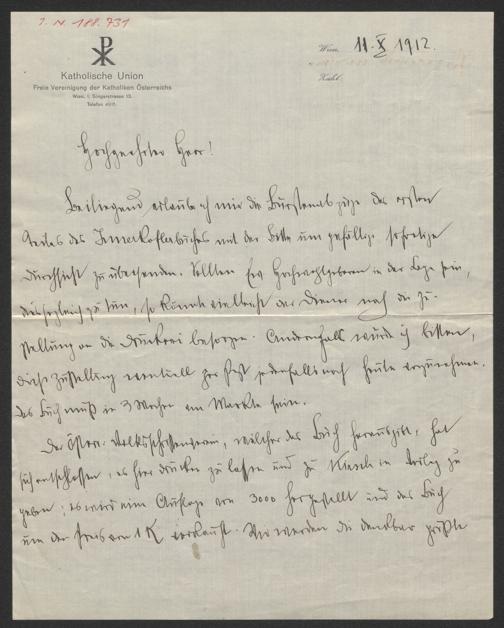 I. N. 188.731
Katholische Union
Freie Vereinigung der Katholiken Österreichs
Wien, I. Singerstrasse 12.
Wien, 11. X 1912.
Zahl:
Hochgeehrter Herr!
Beiliegend erlaube ich mir die Bürstenabzüge des ersten
Teiles des Innerkoflerbuches mit der Bitte um gefällige sofortige
Durchsicht zu übersenden. Sollten Ew Hochwohlgeboren in der Lage sein,
dies sogleich zu tun, so könnte vielleicht der Diener noch die Zu-
stellung an die Druckerei besorgen. Andernfalls würde ich bitten,
diese Zustellung eventuell per Post jedenfalls noch heute vorzunehmen.
Das Buch muß in 3 Wochen am Markte sein.
Der österr. Volksschriftenverein, welcher das Buch herausgibt, hat
sich entschlossen, es hier drucken zu lassen und zu in zu
geben; es wird eine Auflage von 3000 hergestellt und das Buch
um den Preis von 1 K verkauft. Wir werden die denkbar größte